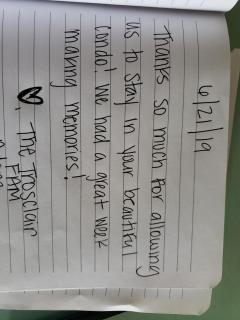 6/21/19
Thanks so much for allowing
us to stay in your beautiful
condo! We had a great week
making memories!
♡, The Trosclair
Fam